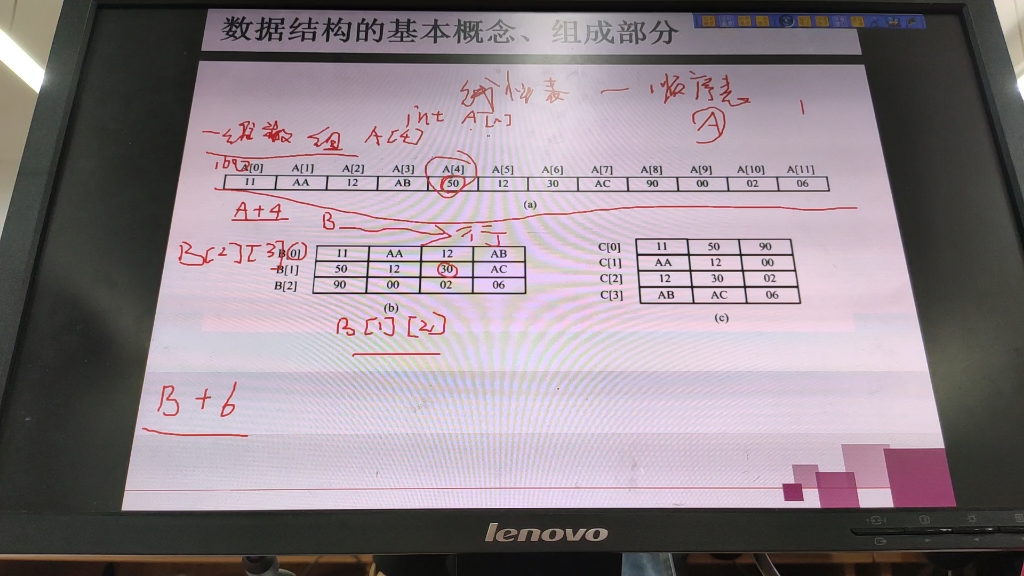 数据结构的基本概念、组成部分
线性表 — 顺序表
int A[ ]
A
一维数组 A[4]
A[0] A[1] A[2] A[3] A[4] A[5] A[6] A[7] A[8] A[9] A[10] A[11]
11 AA 12 AB 50 12 30 AC 90 00 02 06
(a)
A+4
B
B[2][3]
B[0] 11 AA 12 AB
B[1] 50 12 30 AC
B[2] 90 00 02 06
(b)
B[1][2]
C[0] 11 50 90
C[1] AA 12 00
C[2] 12 30 02
C[3] AB AC 06
(c)
B+6
lenovo